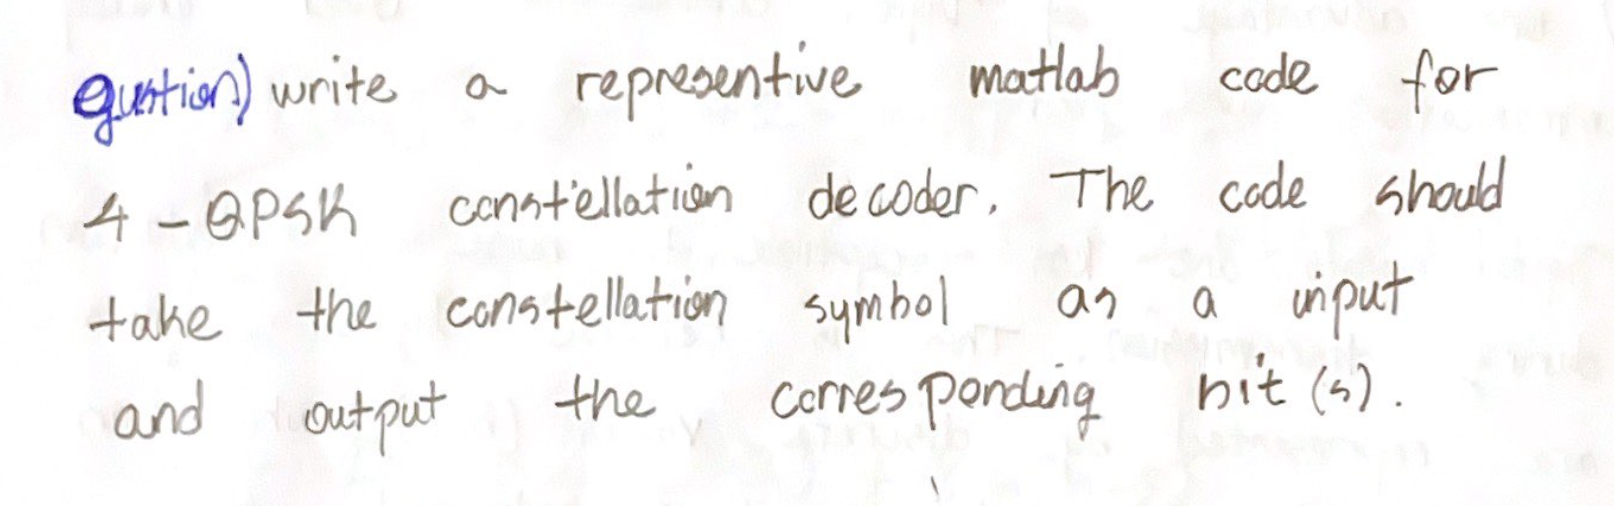 qustion) write a representive matlab code for
4-QPSK constellation decoder. The code should
take the constellation symbol as a input
and output the corresponding bit(s).